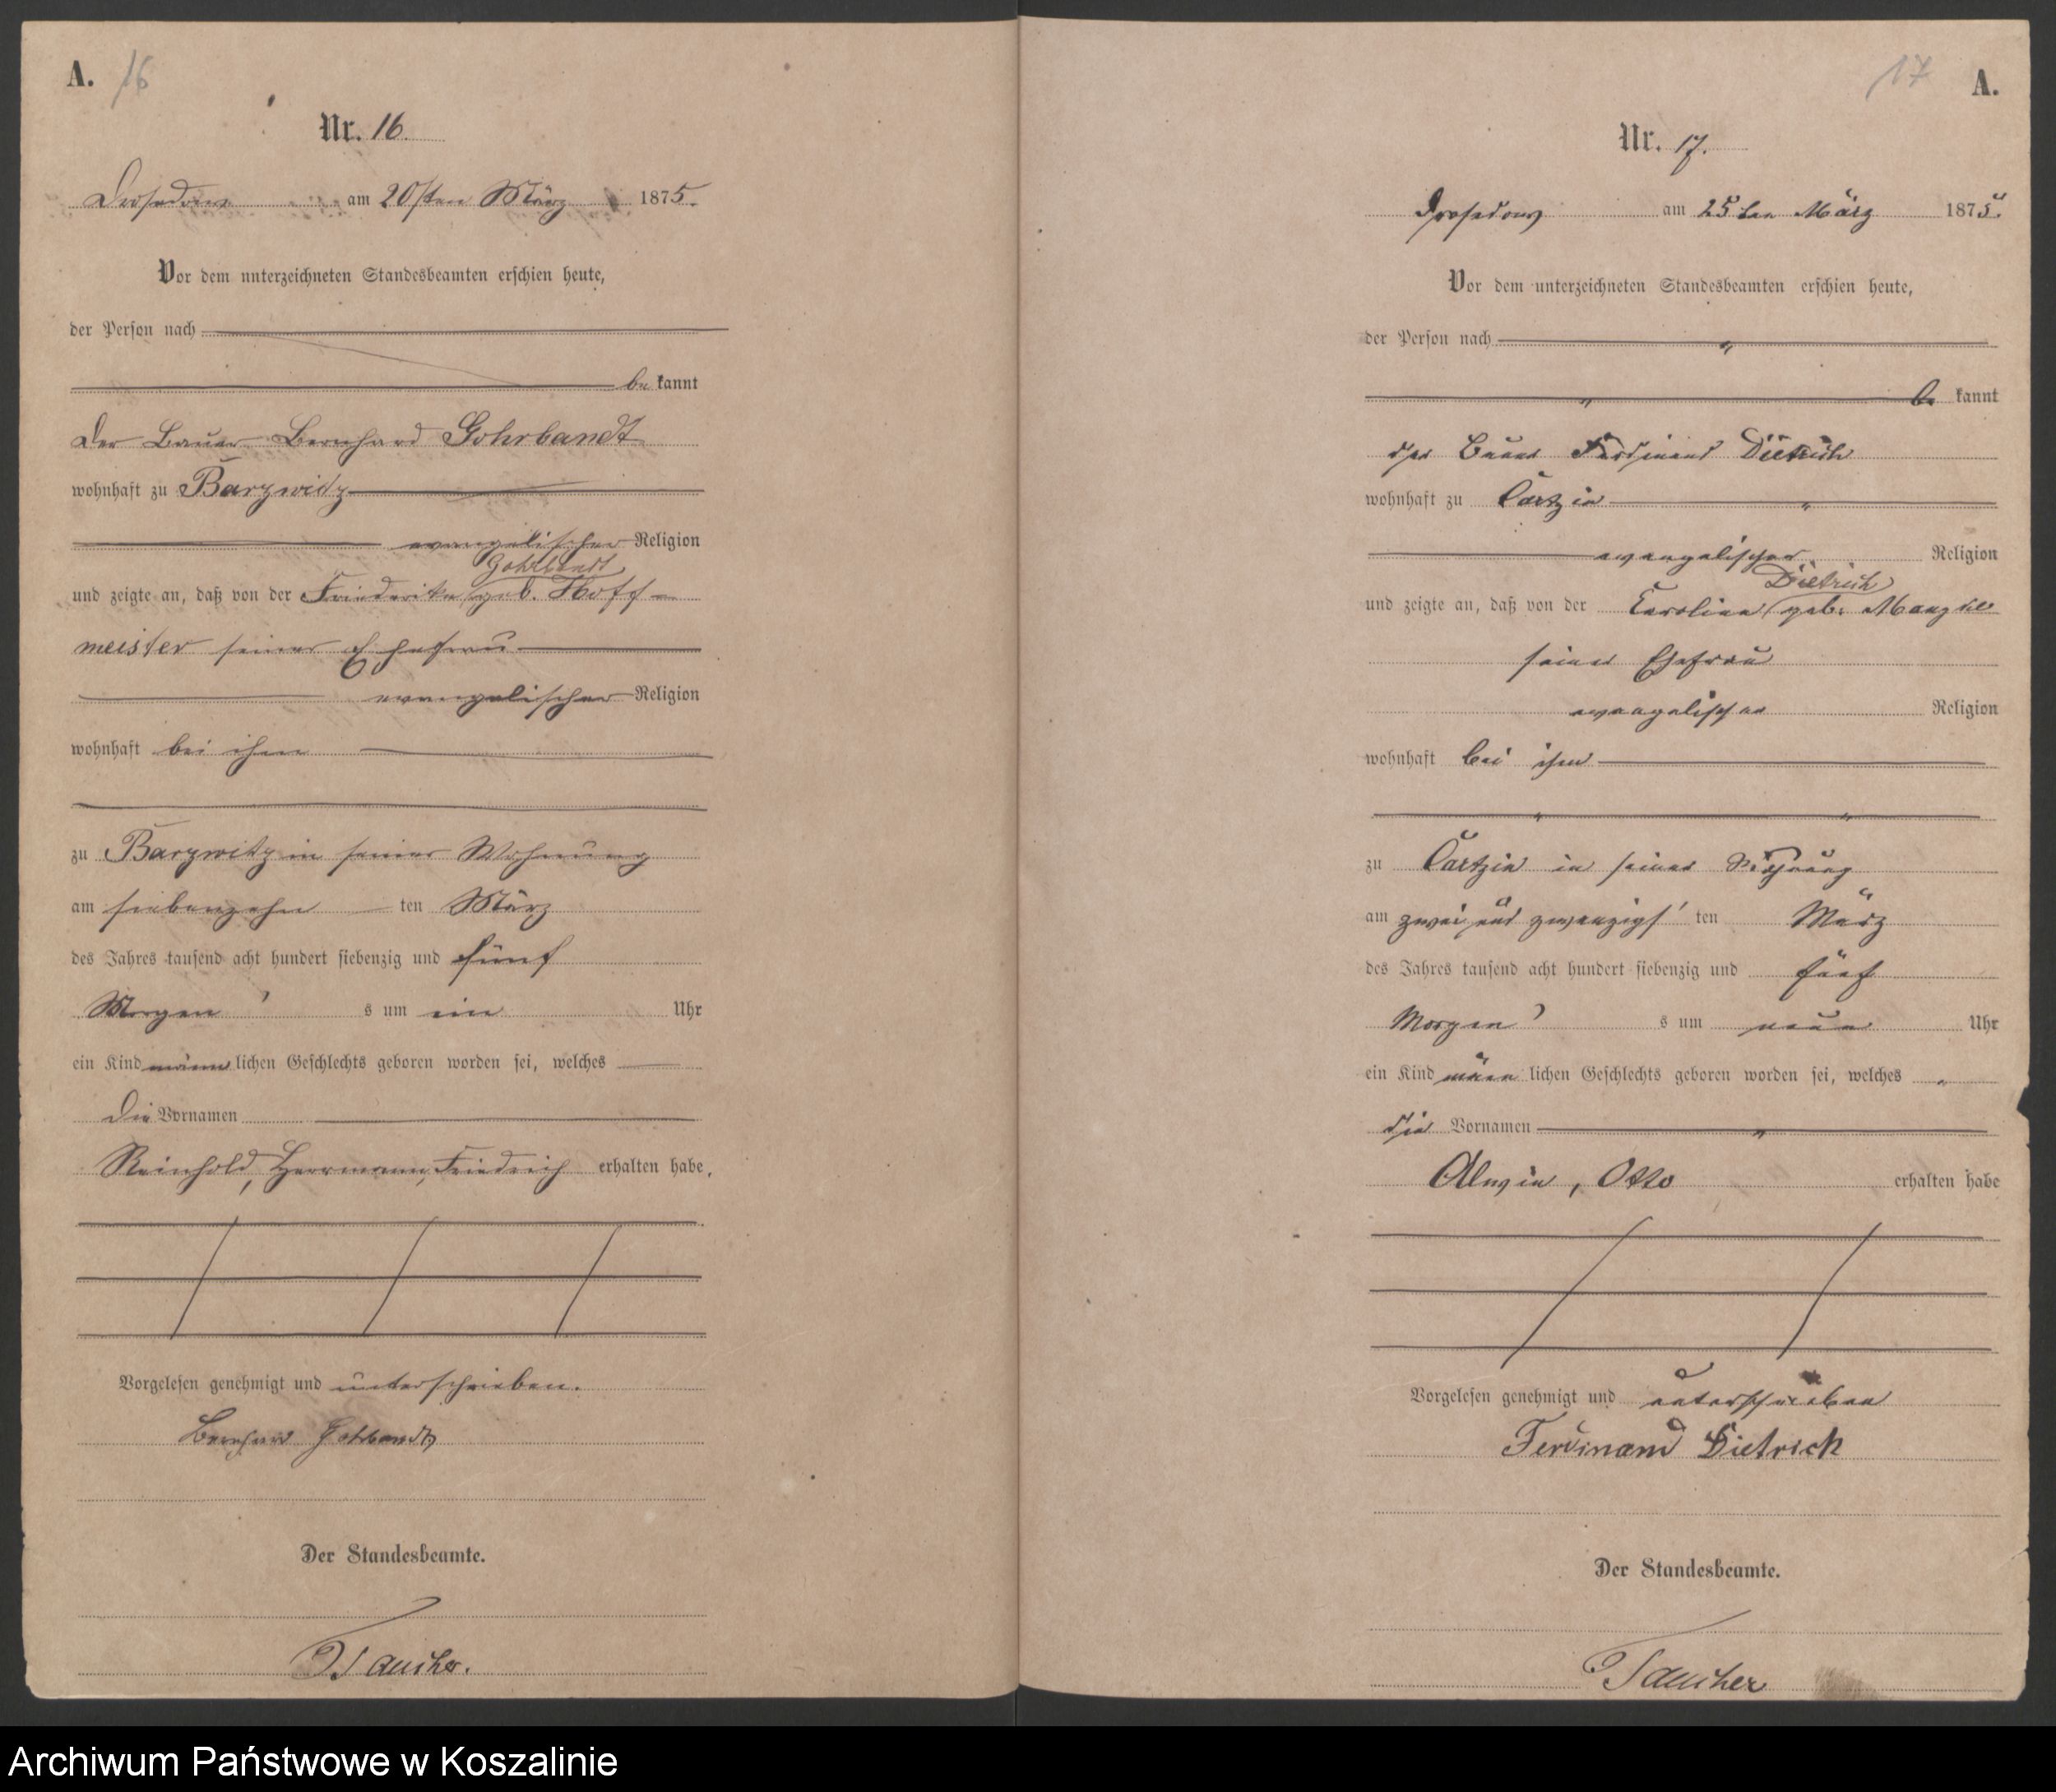 A. 16
Nr. 16.
Drosedow am 20sten März 1875.
Vor dem unterzeichneten Standesbeamten erschien heute,
der Person nach
be kannt
Der Bauer Bernhard Gohrbandt
wohnhaft zu Barzwitz
evangelischer Religion
Gohrbandt
und zeigte an, daß von der Friederike geb. Hoff-
meister seiner Ehefrau
evangelischer Religion
wohnhaft bei ihm
zu Barzwitz in seiner Wohnung
am siebenzehn ten März
des Jahres tausend acht hundert siebenzig und fünf
Morgen s um ein Uhr
ein Kind männlichen Geschlechts geboren worden sei, welches
die Vornamen
Reinhold, Herrmann, Friedrich erhalten habe.
Vorgelesen genehmigt und unterschrieben.
Bernhard Gohrbandt
Der Standesbeamte.
17 A.
Nr. 17.
Drosedow am 25ten März 1875.
Vor dem unterzeichneten Standesbeamten erschien heute,
der Person nach "
" be kannt
der Bauer Ferdinand Dietrich
wohnhaft zu Cartzin "
evangelischer Religion
Dietrich
und zeigte an, daß von der Caroline geb.
seiner Ehefrau
evangelischer Religion
wohnhaft bei ihm
" "
zu Cartzin in seiner Wohnung
am zwei und zwanzigs ten März
des Jahres tausend acht hundert siebenzig und fünf
Morgen s um neun Uhr
ein Kind männlichen Geschlechts geboren worden sei, welches "
die Vornamen "
Alwin, Otto erhalten habe
Vorgelesen genehmigt und unterschrieben
Ferdinand Dietrich
Der Standesbeamte.
Archiwum Państwowe w Koszalinie